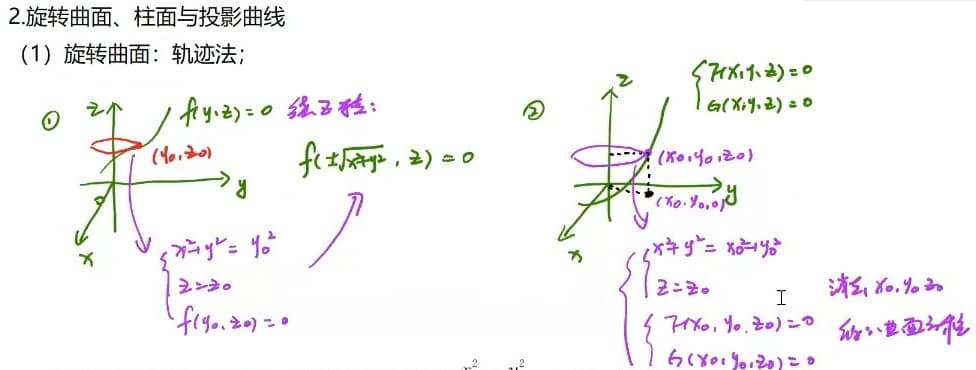 2.旋转曲面、柱面与投影曲线
（1）旋转曲面：轨迹法；
① z f(y,z)=0 绕z轴：
(y₀,z₀)
f(±√x²+y², z)=0
o y
x
x²+y²=y₀²
z=z₀
f(y₀,z₀)=0
② z F(x,y,z)=0
G(x,y,z)=0
(x₀,y₀,z₀)
y
(x₀,y₀,0)
x
x²+y²=x₀²+y₀²
z=z₀
F(x₀,y₀,z₀)=0
G(x₀,y₀,z₀)=0
消去x₀,y₀,z₀
x² y²